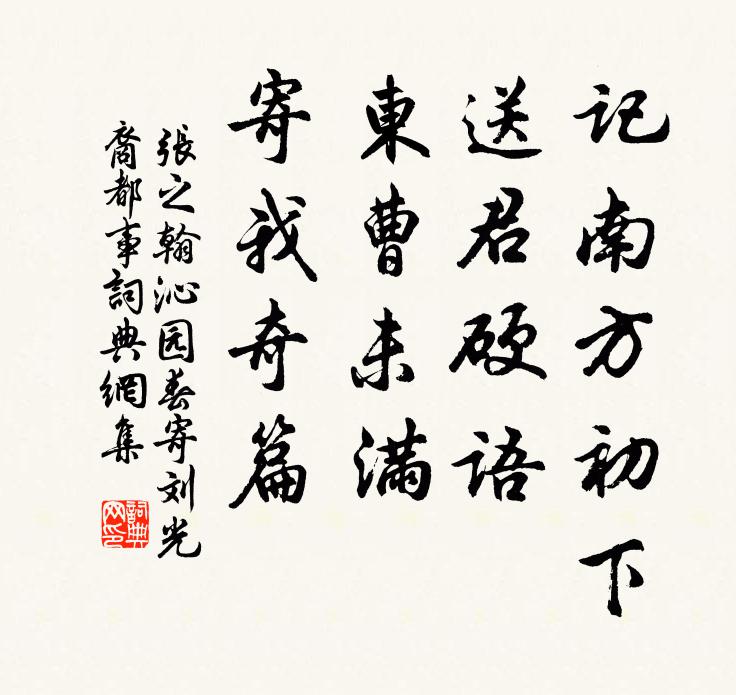 记南方初下
送君硬语
東曹未满
寄我奇篇
張之翰沁园春寄刘光
裔都事詞典網集
詞典网印